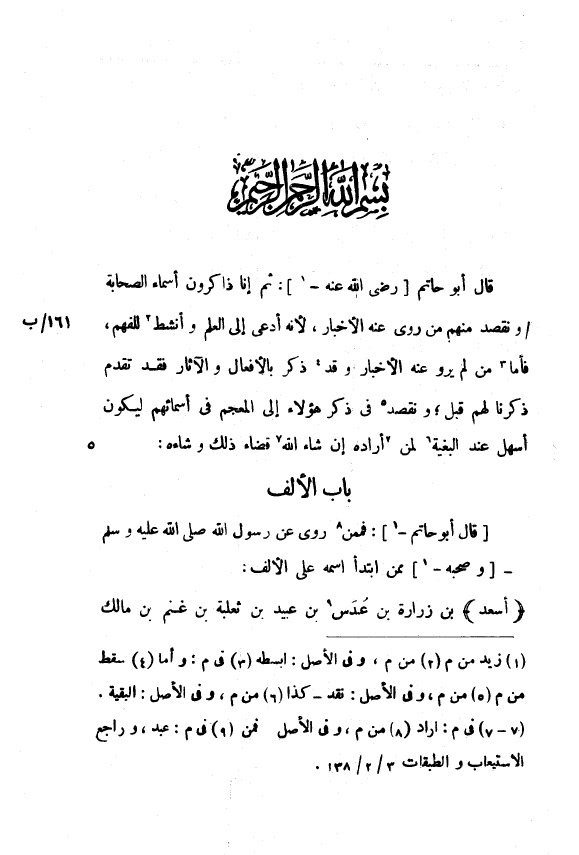 بسم الله الرحمن الرحيم
قال أبو حاتم [ رضى الله عنه - ١ ] : ثم إنا ذاكرون أسماء الصحابة
/ و نقصد منهم من روى عنه الأخبار ، لأنه أدعى إلى العلم و أنشط٢ للفهم ، ١٦١/ب
فأما٣ من لم يرو عنه الأخبار و قد٤ ذكر بالأفعال و الآثار فقد تقدم
ذكرنا لهم قبل ؛ و نقصد٥ فى ذكر هؤلاء إلى المعجم فى أسمائهم ليكون
أسهل عند البغية٦ لمن ٧أراده إن شاء الله٧ قضاء ذلك و شاءه : ٥
باب الألف
[ قال أبو حاتم - ١ ] : فممن٨ روى عن رسول الله صلى الله عليه و سلم
- [ و صحبه - ١ ] ممن ابتدأ اسمه على الألف :
﴿ أسعد ﴾ بن زرارة بن عُدَس٩ بن عبيد بن ثعلبة بن غنم بن مالك
(١) زيد من م (٢) من م ، و فى الأصل : ابسطه (٣) فى م : و أما (٤) سقط
من م (٥) من م ، و فى الأصل : نقد - كذا (٦) من م ، و فى الأصل : البقية .
(٧-٧) فى م : اراد (٨) من م ، و فى الأصل فمن (٩) فى م : عبد ، و راجع
الاستيعاب و الطبقات ٣ / ٢ / ١٣٨ .